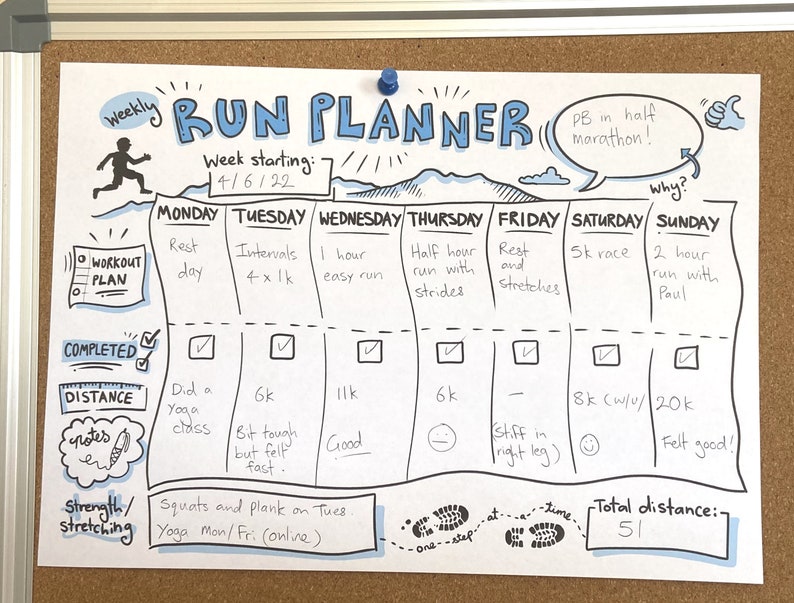 Weekly
RUN PLANNER
Week starting:
4/6/22
PB in half
marathon!
Why?
MONDAY
TUESDAY
WEDNESDAY
THURSDAY
FRIDAY
SATURDAY
SUNDAY
WORKOUT
PLAN
Rest
day
Intervals
4 x 1k
1 hour
easy run
Half hour
run with
strides
Rest
and
stretches
5k race
2 hour
run with
Paul
COMPLETED
DISTANCE
notes
Did a
yoga
class
6k
Bit tough
but felt
fast.
11k
Good
6k
–
(Stiff in
right leg)
8k (w/u)
20k
Felt good!
Strength/
stretching
Squats and plank on Tues.
Yoga Mon/Fri (online)
one step at a time
Total distance:
51